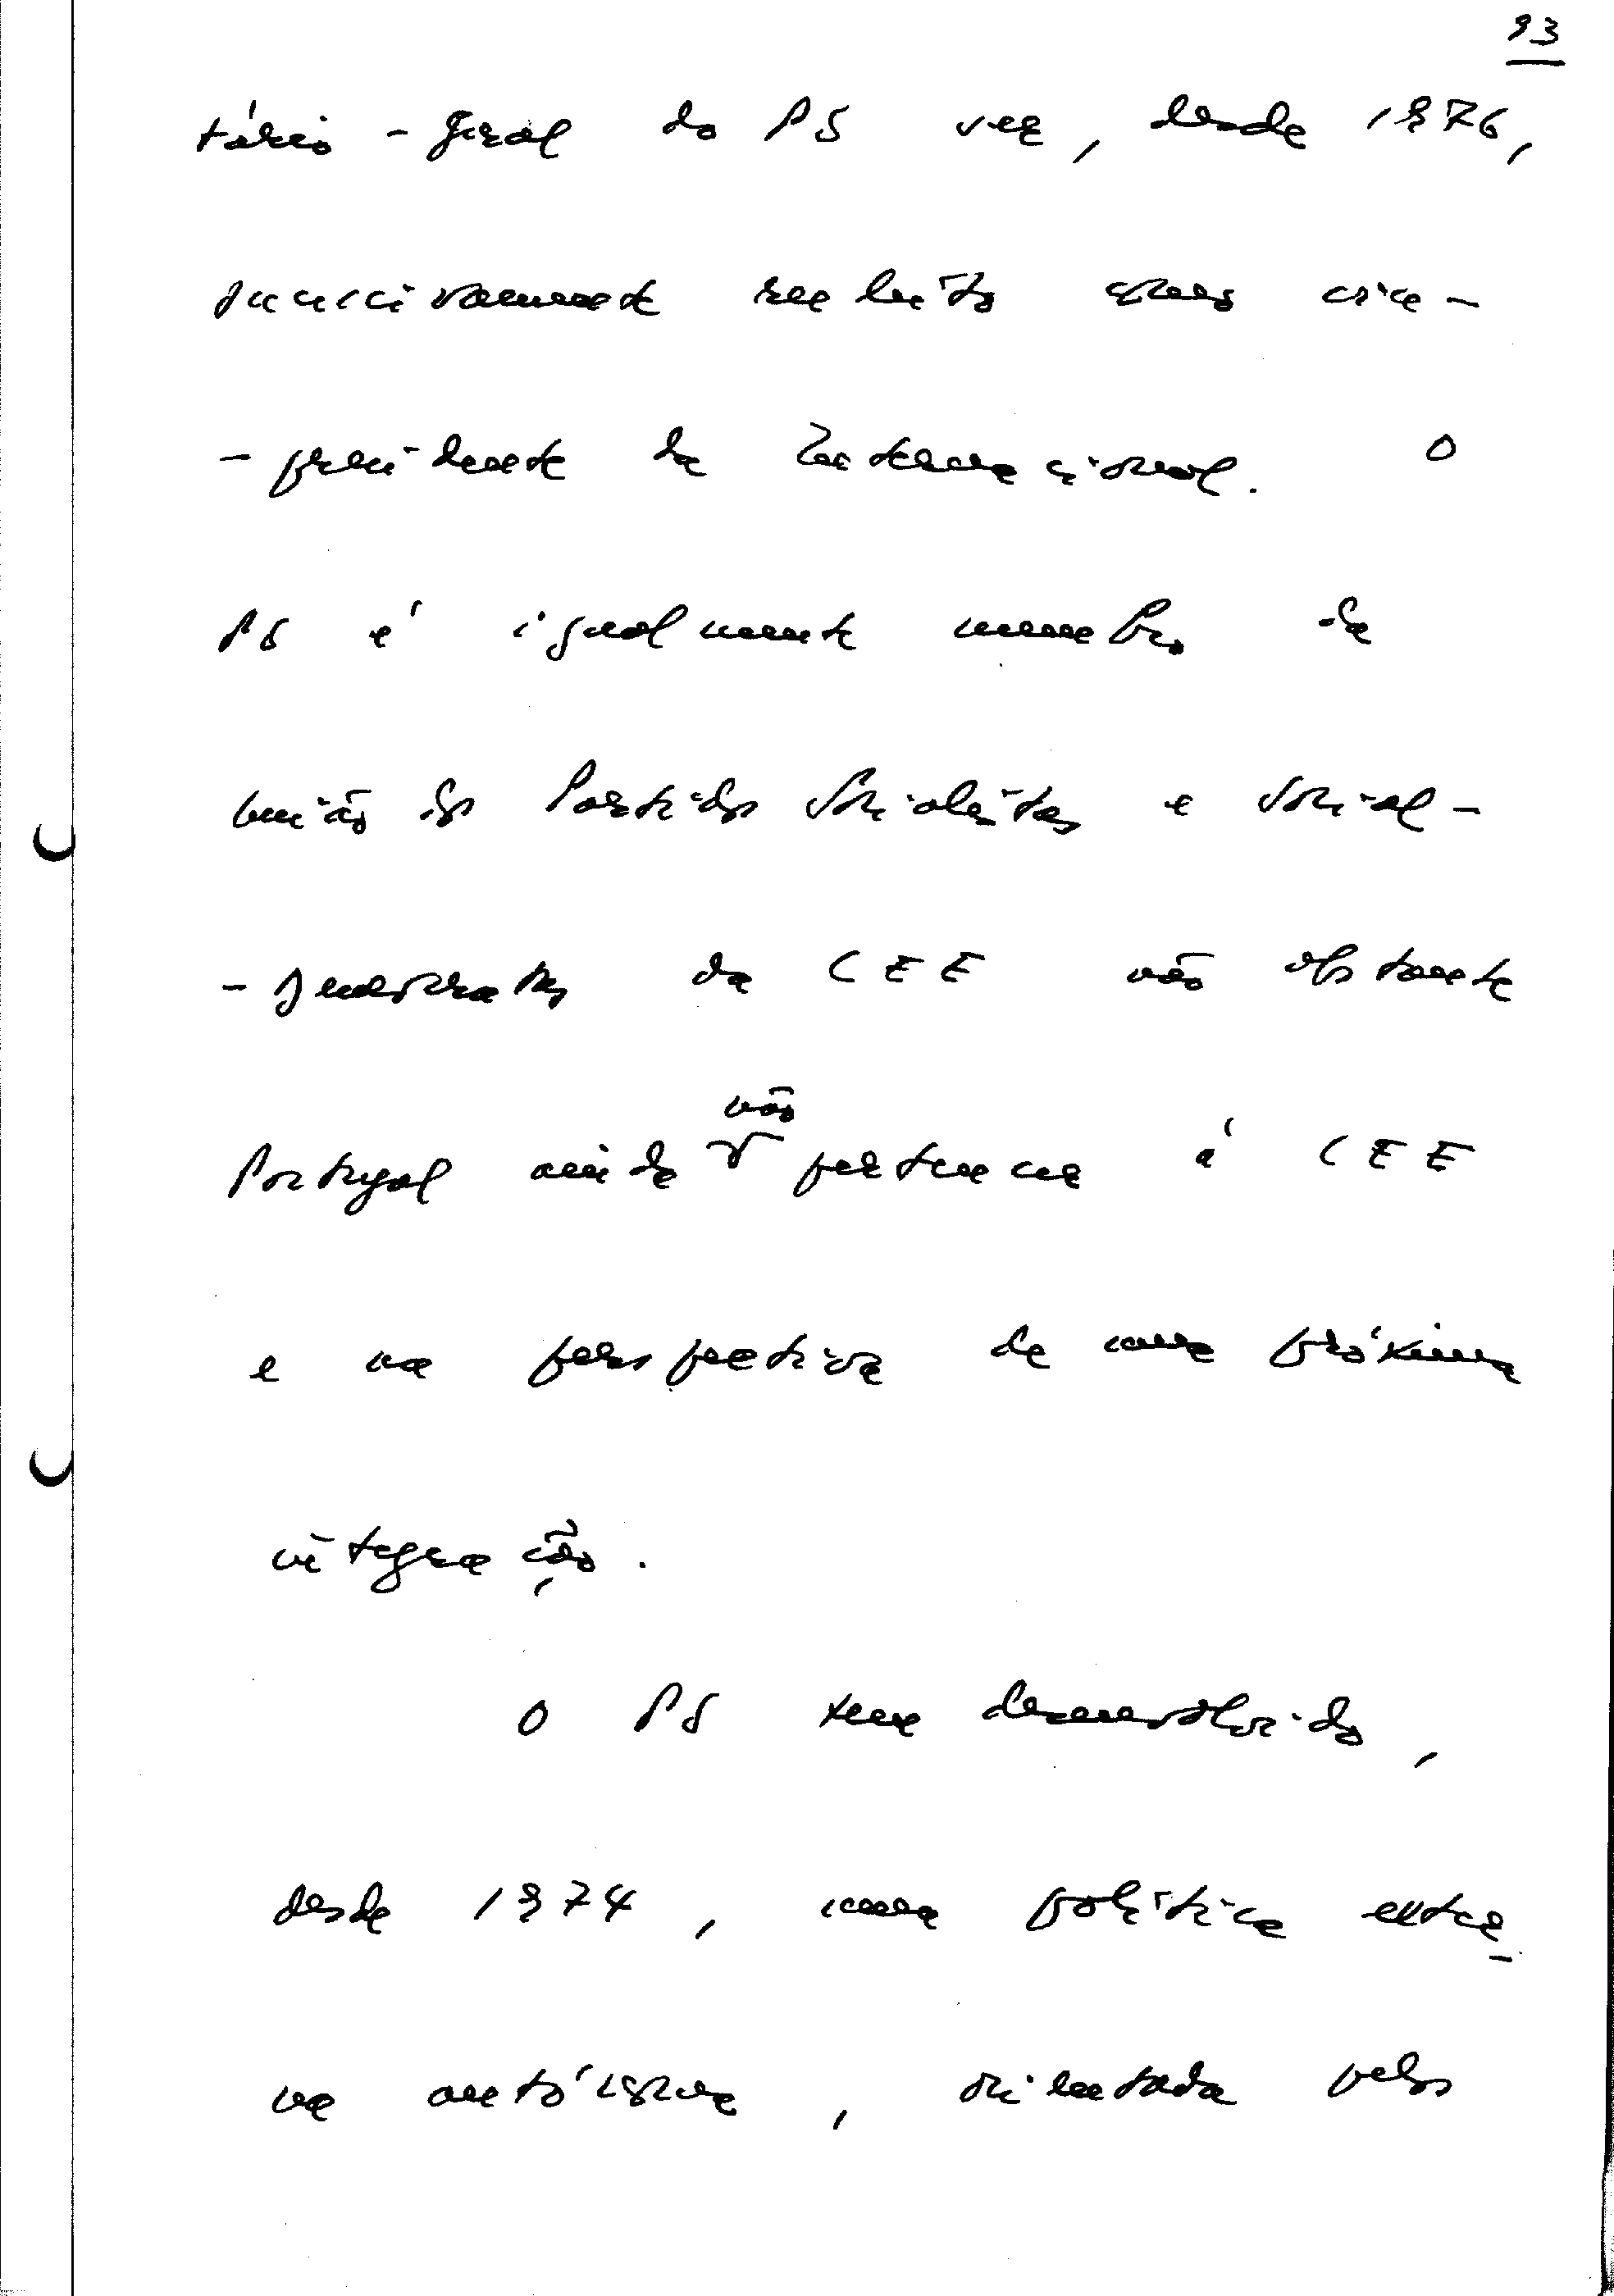 93
tário-geral do PS vem, desde 1976,
sucessivamente reeleito como vice-
-presidente da Internacional. O
PS é igualmente membro da
União dos Partidos Socialistas e Social-
-democratas da CEE não obstante
não
Portugal ainda pertencer à CEE
e na perspectiva de uma próxima
integração.
O PS tem desenvolvido,
desde 1974, uma política exter-
na autónoma, orientada pelos